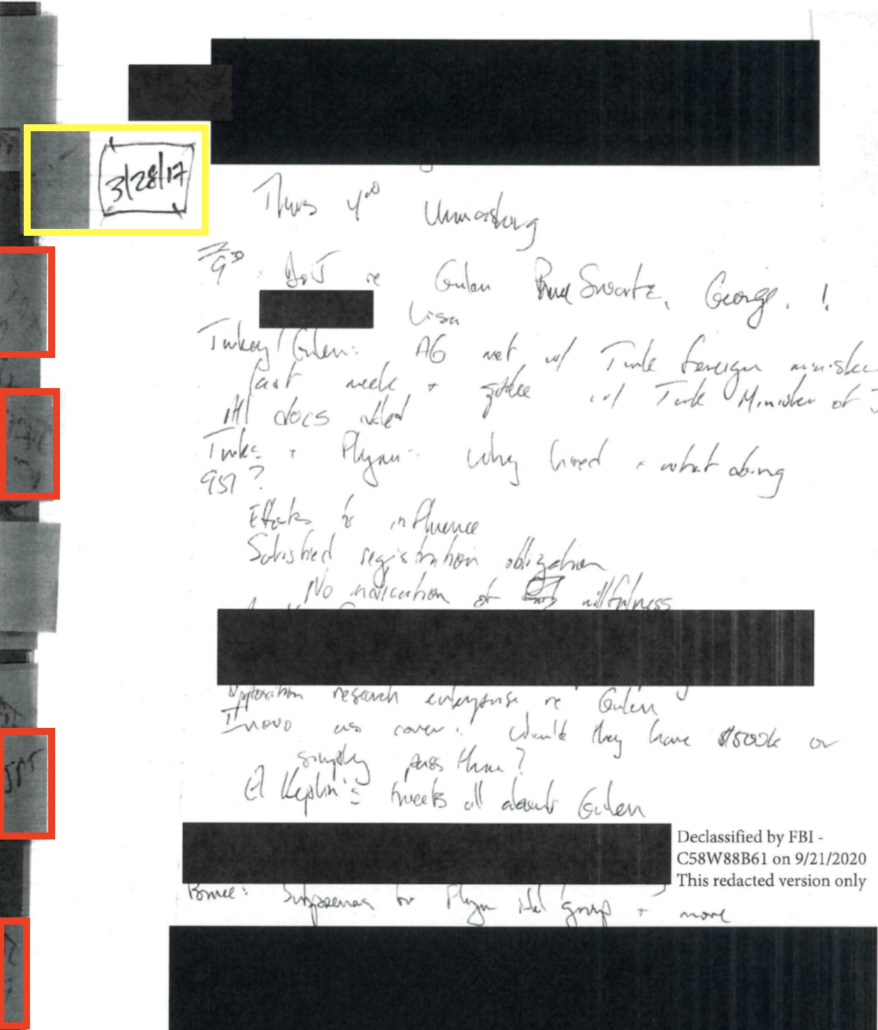 3/28/17
Thurs 4:00 Unmasking
9:30 DoJ re Gulen Bruce Swartz, George,
Lisa
Turkey/Gulen: AG met w/ Turk foreign minister
last week + w/ Turk Minister of J
All docs
Turks + Flynn: Why hired + what doing
951?
Efforts to influence
Satisfied registration obligation
No indication of willfulness
Opposition research enterprise re Gulen
Inovo as cover. Would they have $500k or
simply pass thru?
tweets all about Gulen
Declassified by FBI -
C58W88B61 on 9/21/2020
This redacted version only
Bruce: Subpoenas for Flynn Intel group + more